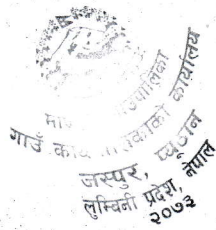 गाउँ कार्यपालिकाको कार्यालय
जस्पुर, प्यूठान
लुम्बिनी प्रदेश, नेपाल
२०७३